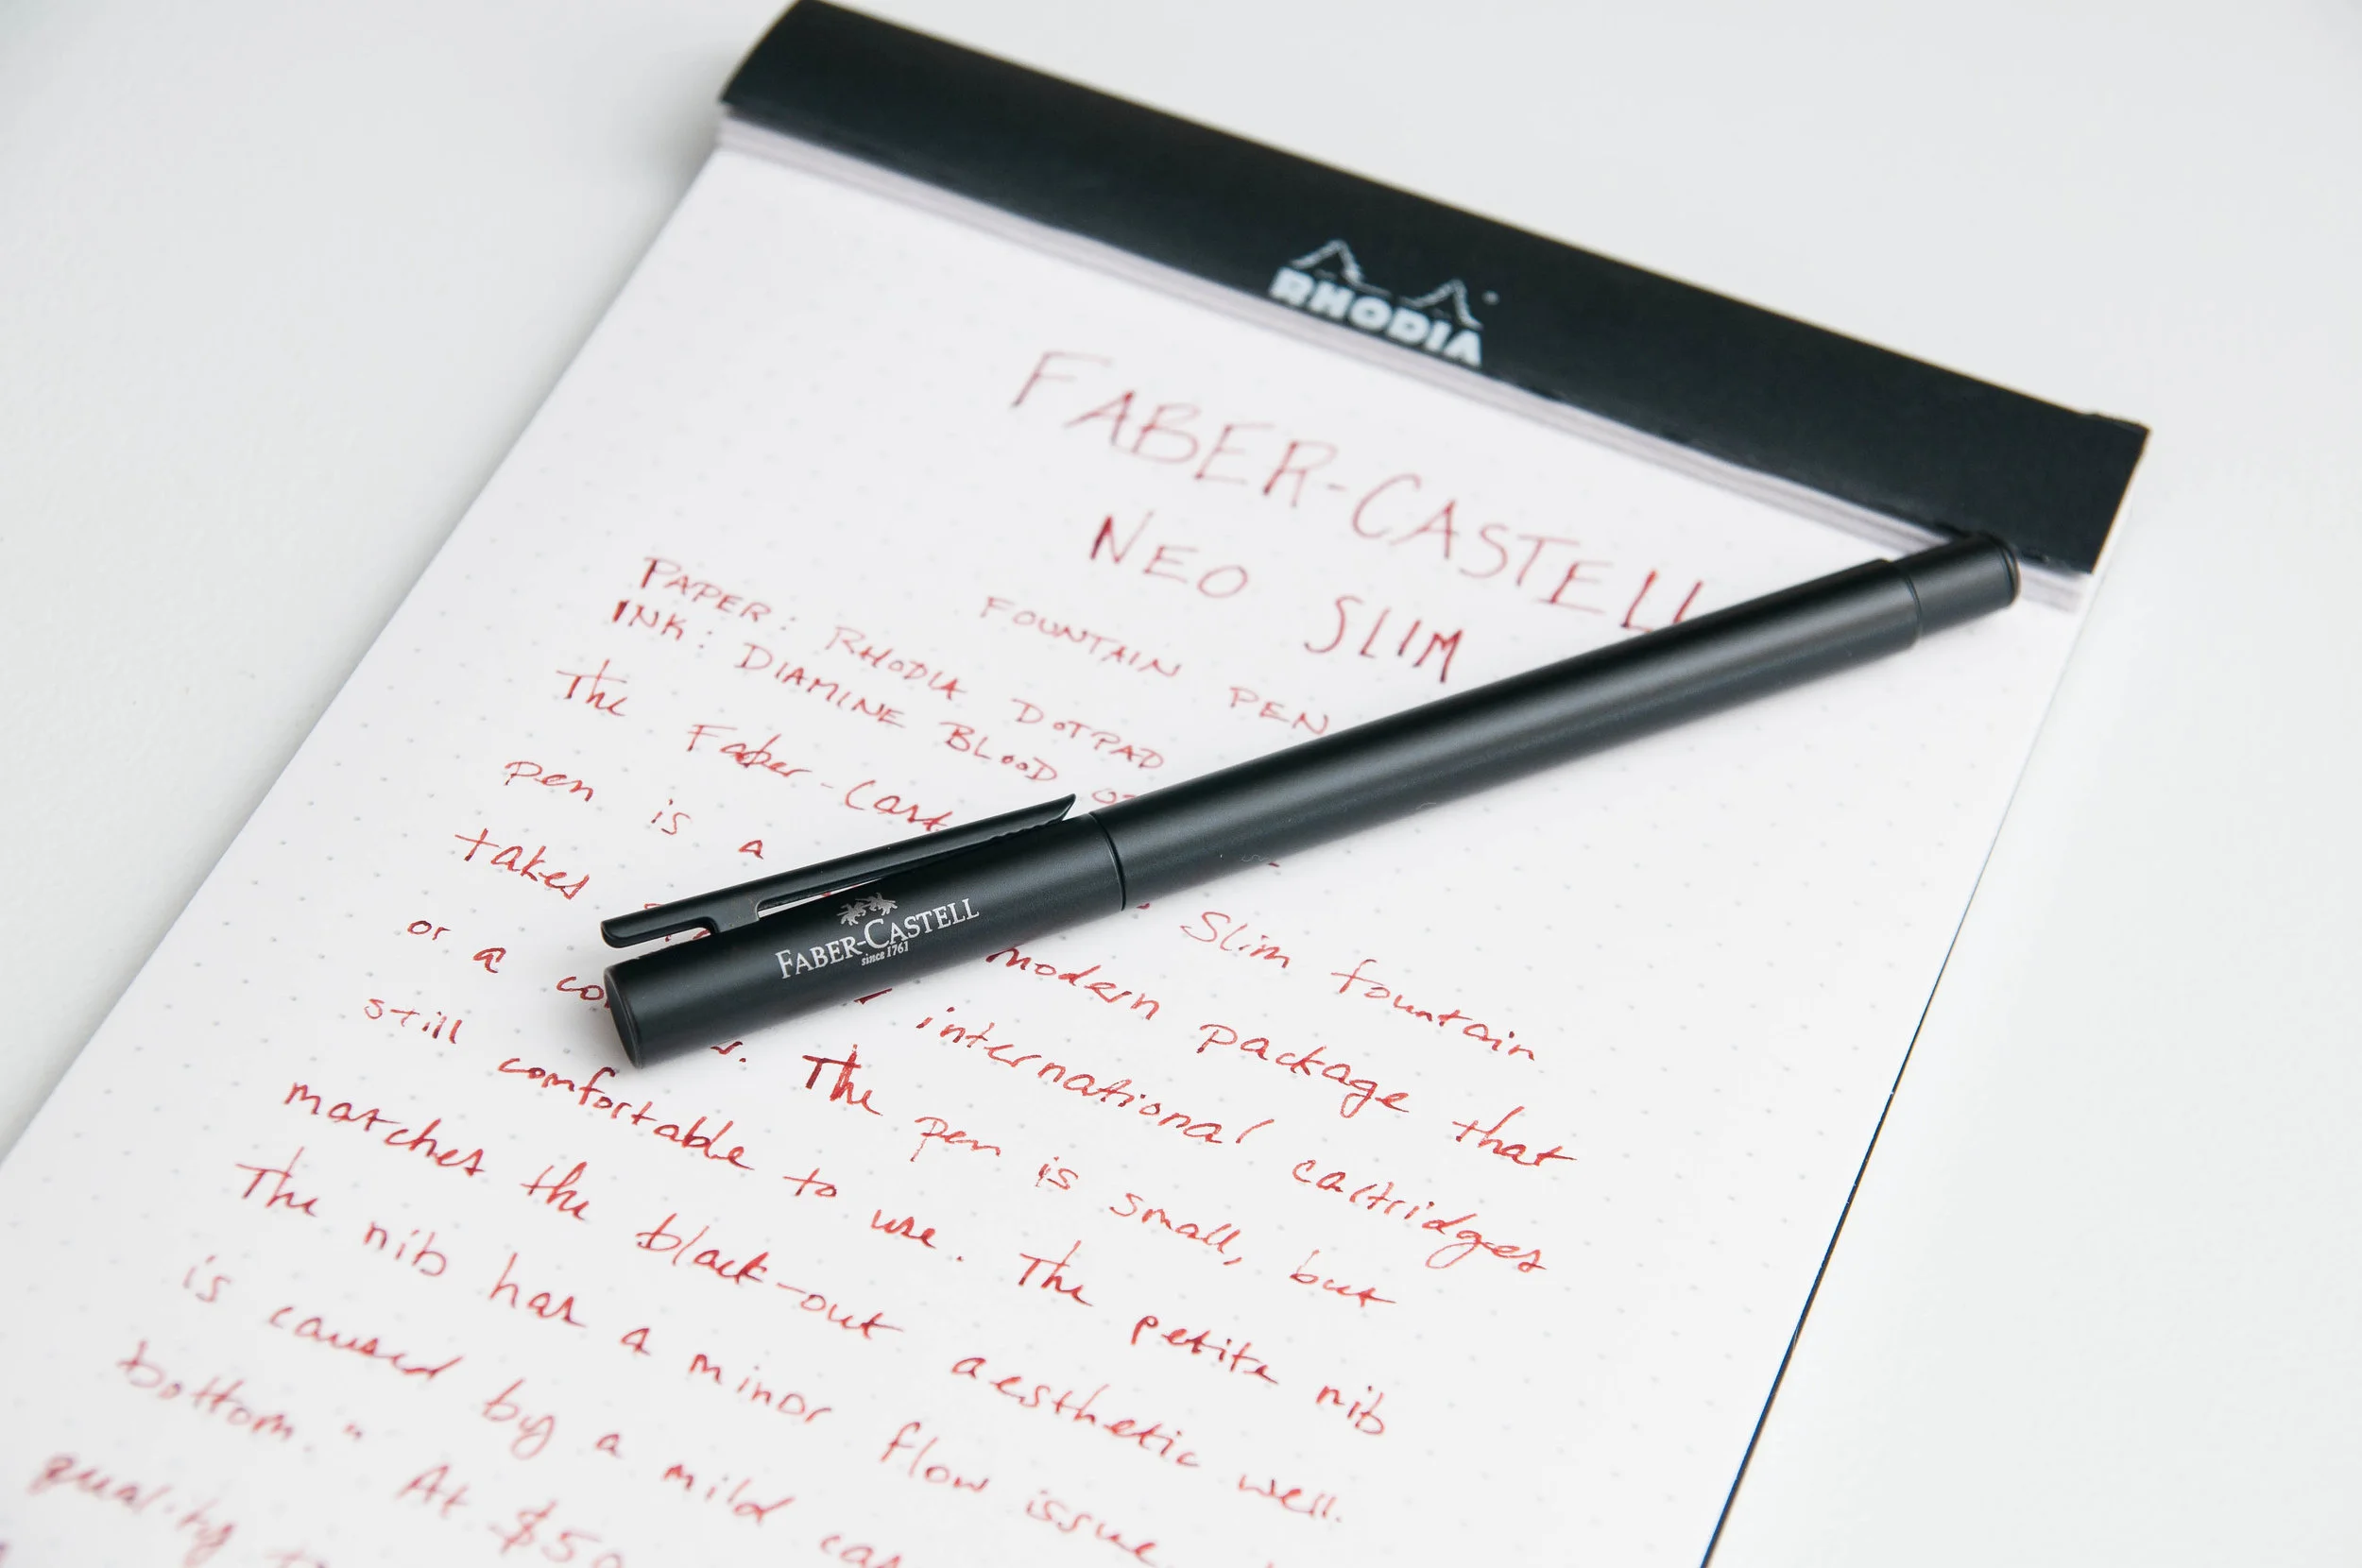 RHODIA
FABER-CASTELL
NEO SLIM
FOUNTAIN PEN
PAPER: RHODIA DOTPAD
INK: DIAMINE BLOOD
The Faber-Cast Slim fountain
pen is a modern package that
takes international cartridges
or a The pen is small, but
still comfortable to use. The petite nib
matches the black-out aesthetic well.
The nib has a minor flow issue
is caused by a mild
bottom." At $50
quality
FABER-CASTELL
since 1761